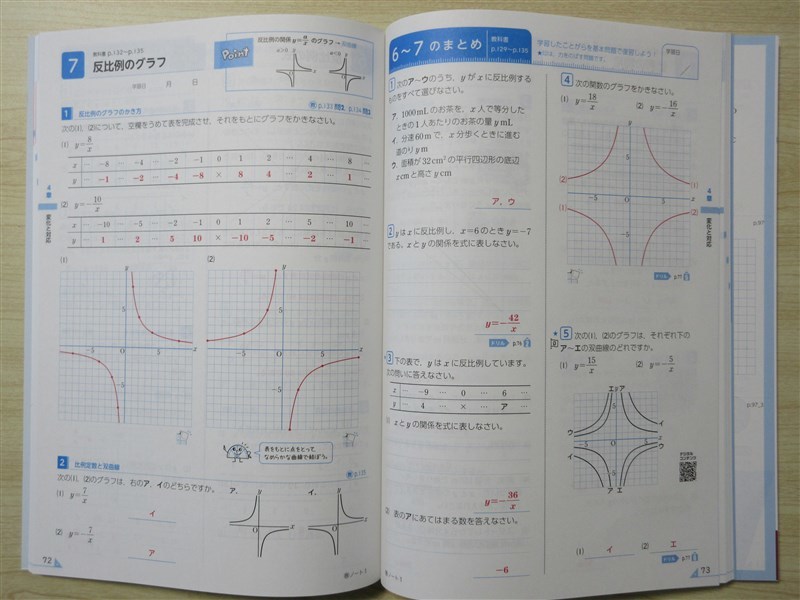 7
教科書 p.132～p.135
反比例のグラフ
学習日 月 日
Point
反比例の関係 y=a/x のグラフ → 双曲線
1 反比例のグラフのかき方
次の(1), (2)について, 空欄をうめて表を完成させ, それをもとにグラフをかきなさい。
(1) y=8/x
x … −8 … −4 … −2 −1 0 1 2 … 4 … 8 …
y … −1 … −2 … −4 −8 × 8 4 … 2 … 1 …
(2) y=−10/x
x … −10 … −5 … −2 −1 0 1 2 … 5 … 10 …
y … 1 … 2 … 5 10 × −10 −5 … −2 … −1 …
(1)
y
5
−5 O 5 x
−5
(2)
y
5
−5 O 5 x
−5
表をもとに点をとって,
なめらかな曲線で結ぼう。
2 比例定数と双曲線
次の(1), (2)のグラフは, 右のア, イのどちらですか。
(1) y=7/x
イ
(2) y=−7/x
ア
ア. y O x
イ. y O x
4章 変化と対応
72
6～7 のまとめ
教科書 p.129～p.135
学習したことがらを基本問題で復習しよう！
学習日
1 次のア～ウのうち, y が x に反比例する
ものをすべて選びなさい。
ア. 1000mL のお茶を, x 人で等分した
ときの1人あたりのお茶の量 y mL
イ. 分速60m で, x 分歩くときに進む
道のり y m
ウ. 面積が32cm² の平行四辺形の底辺
x cm と高さ y cm
ア, ウ
2 y は x に反比例し, x=6 のとき y=−7
である。x と y の関係を式に表しなさい。
y=−42/x
ドリル p.76
3 下の表で, y は x に反比例しています。
次の問いに答えなさい。
x … −9 … 0 … 6 …
y … 4 … × … ア …
x と y の関係を式に表しなさい。
y=−36/x
表のアにあてはまる数を答えなさい。
−6
4 次の関数のグラフをかきなさい。
(1) y=18/x
(2) y=−16/x
y
5
(2) (1)
−5 O 5 x
(1) (2)
−5
ドリル p.77
★5 次の(1), (2)のグラフは, それぞれ下の
ア～エの双曲線のどれですか。
(1) y=15/x
(2) y=−5/x
エ y ア
5
ウ イ
−5 O 5 x
イ ウ
−5
ア エ
(1) イ
(2) エ
ドリル p.77
4章 変化と対応
73